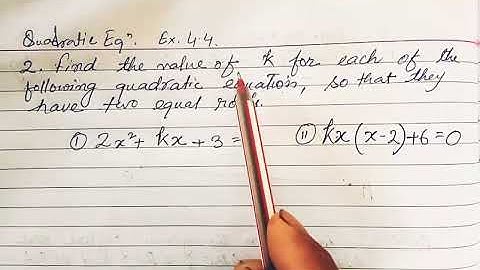 Quadratic Eqⁿ. Ex. 4.4.
2. Find the value of k for each of the
following quadratic equation, so that they
have two equal
① 2x² + kx + 3 = ⑪ kx(x-2)+6=0